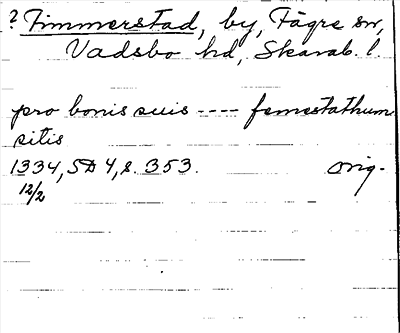 ? Fimmerstad, by, Fägre sn,
Vadsbo hd, Skarab. l.
pro bonis suis ---- femestathum
sitis
1334, SD 4, s. 353. orig.
12/2